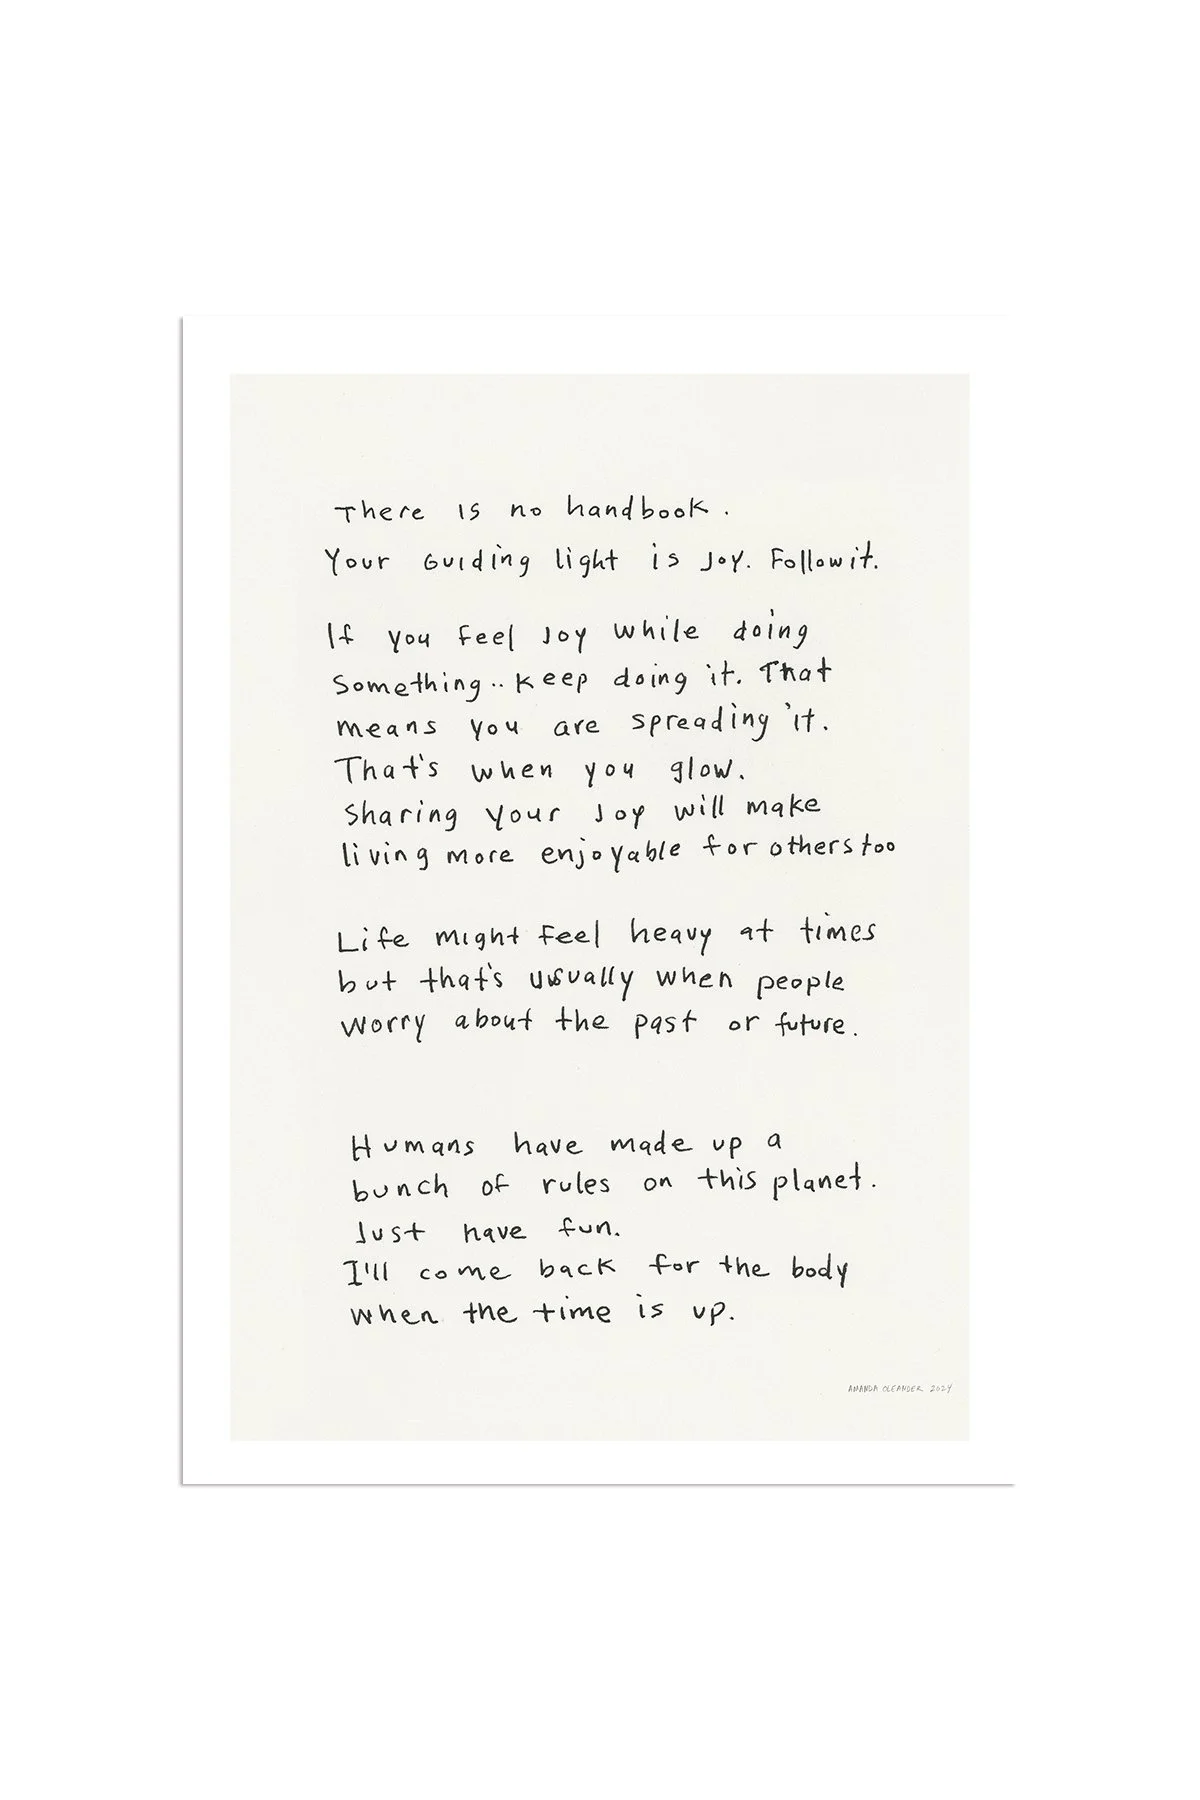 There is no handbook.
Your Guiding light is Joy. Follow it.
If you feel Joy while doing
something.. keep doing it. That
means you are spreading it.
That's when you glow.
Sharing your Joy will make
living more enjoyable for others too
Life might feel heavy at times
but that's usually when people
worry about the past or future.
Humans have made up a
bunch of rules on this planet.
Just have fun.
I'll come back for the body
when the time is up.
AMANDA OLEANDER 2024